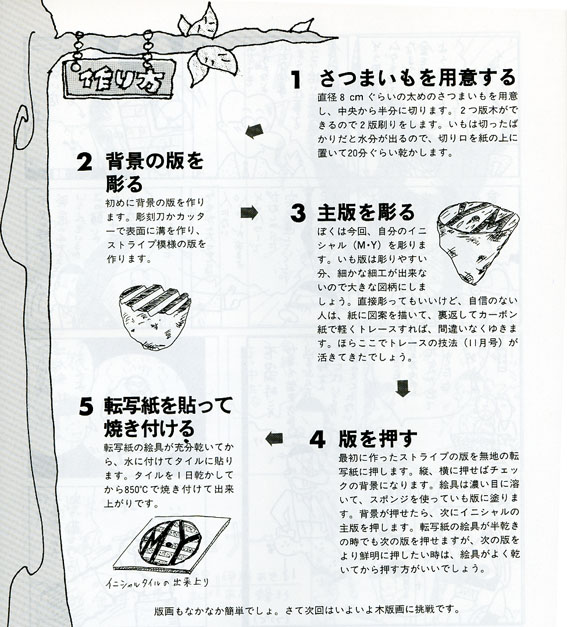 作り方
1 さつまいもを用意する
直径8cmぐらいの太めのさつまいもを用意
し、中央から半分に切ります。2つ版木がで
きるので2版刷りをします。いもは切ったば
かりだと水分が出るので、切り口を紙の上に
置いて20分ぐらい乾かします。
2 背景の版を
彫る
初めに背景の版を作り
ます。彫刻刀かカッタ
ーで表面に溝を作り、
ストライプ模様の版を
作ります。
3 主版を彫る
ぼくは今回、自分のイニ
シャル（M・Y）を彫りま
す。いも版は彫りやすい
分、細かな細工が出来な
いので大きな図柄にしま
しょう。直接彫ってもいいけど、自信のない
人は、紙に図案を描いて、裏返してカーボン
紙で軽くトレースすれば、間違いなくゆきま
す。ほらここでトレースの技法（11月号）が
活きてきたでしょう。
4 版を押す
最初に作ったストライプの版を無地の転
写紙に押します。縦、横に押せばチェッ
クの背景になります。絵具は濃い目に溶
いて、スポンジを使っていも版に塗りま
す。背景が押せたら、次にイニシャルの
主版を押します。転写紙の絵具が半乾き
の時でも次の版を押せますが、次の版を
より鮮明に押したい時は、絵具がよく乾
いてから押す方がいいでしょう。
5 転写紙を貼って
焼き付ける
転写紙の絵具が充分乾いてか
ら、水に付けてタイルに貼り
ます。タイルを1日乾かして
から850℃で焼き付けて出来
上がりです。
M・Y
イニシャルタイルの出来上り
版画もなかなか簡単でしょ。さて次回はいよいよ木版画に挑戦です。